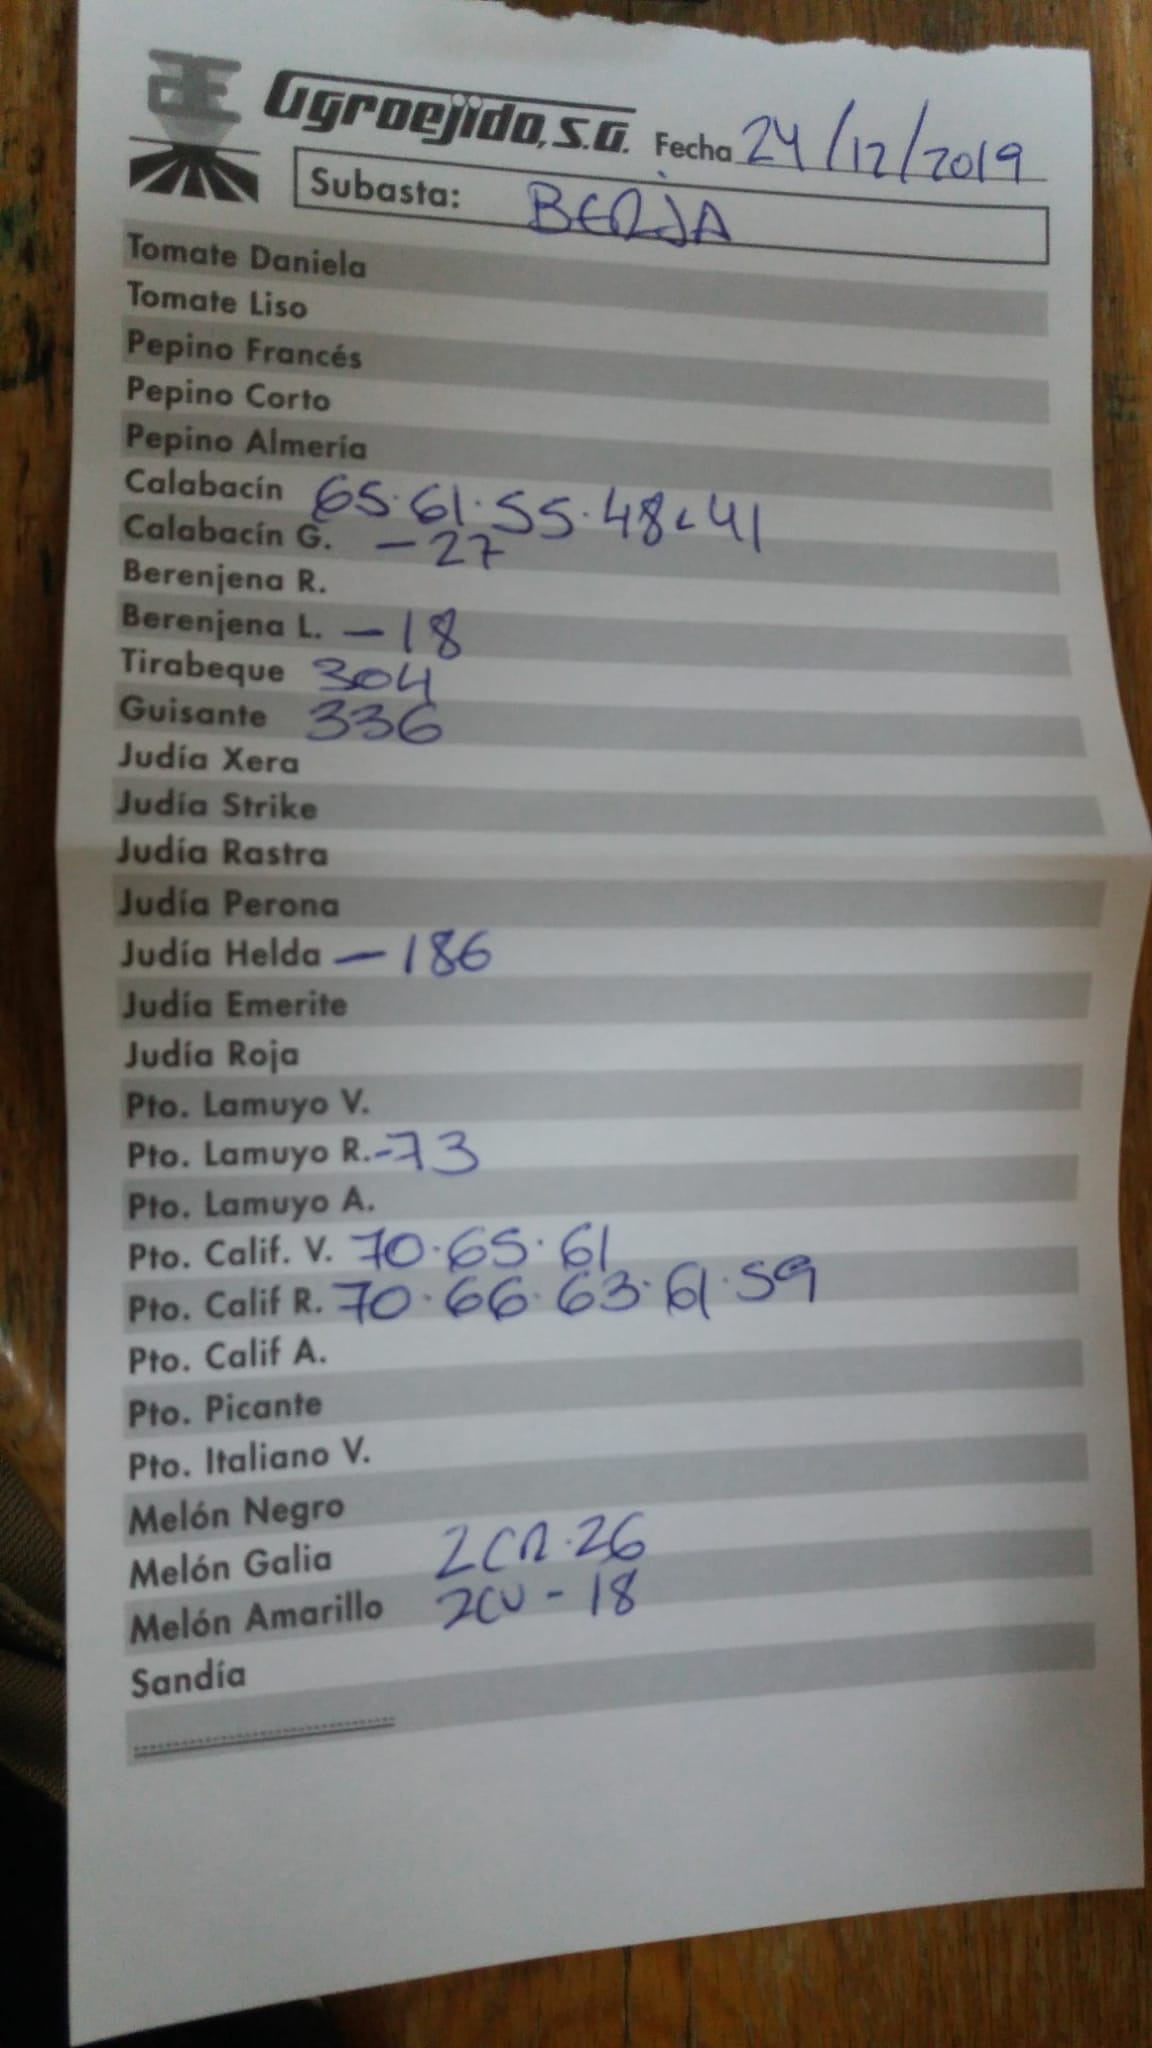 Agroejido, S.A. Fecha 24/12/2019
Subasta: BERJA
Tomate Daniela
Tomate Liso
Pepino Francés
Pepino Corto
Pepino Almería
Calabacín 65·61·55·48·41
Calabacín G. -27
Berenjena R.
Berenjena L. -18
Tirabeque 304
Guisante 336
Judía Xera
Judía Strike
Judía Rastra
Judía Perona
Judía Helda -186
Judía Emerite
Judía Roja
Pto. Lamuyo V.
Pto. Lamuyo R.-73
Pto. Lamuyo A.
Pto. Calif. V. 70·65·61
Pto. Calif R. 70·66·63·61·59
Pto. Calif A.
Pto. Picante
Pto. Italiano V.
Melón Negro
Melón Galia 2CR·26
Melón Amarillo 2CV-18
Sandía